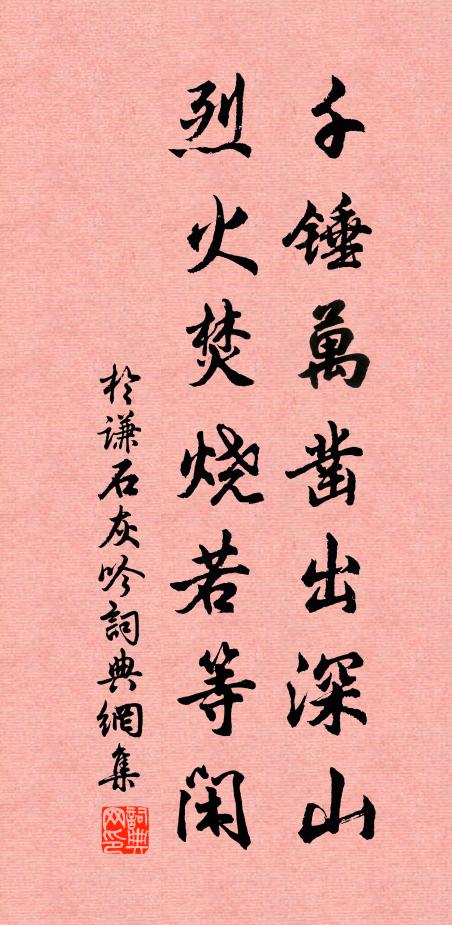 千錘萬凿出深山
烈火焚烧若等闲
於谦石灰吟詞典網集
詞典网印